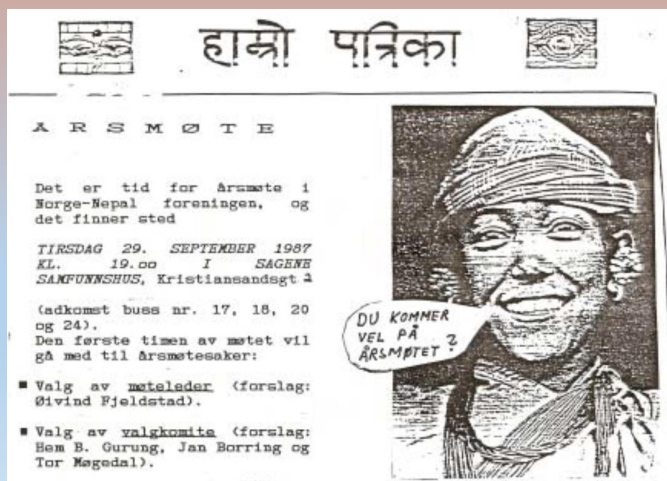 हाम्रो पत्रिका
ÅRSMØTE
Det er tid for årsmøte i
Norge-Nepal foreningen, og
det finner sted
TIRSDAG 29. SEPTEMBER 1987
KL. 19.oo I SAGENE
SAMFUNNSHUS, Kristiansandsgt
(adkomst buss nr. 17, 18, 20
og 24).
Den første timen av møtet vil
gå med til årsmøtesaker:
■ Valg av møteleder (forslag:
Øivind Fjeldstad).
■ Valg av valgkomite (forslag:
Hem B. Gurung, Jan Borring og
Tor Møgedal).
DU KOMMER
VEL PÅ
ÅRSMØTET?